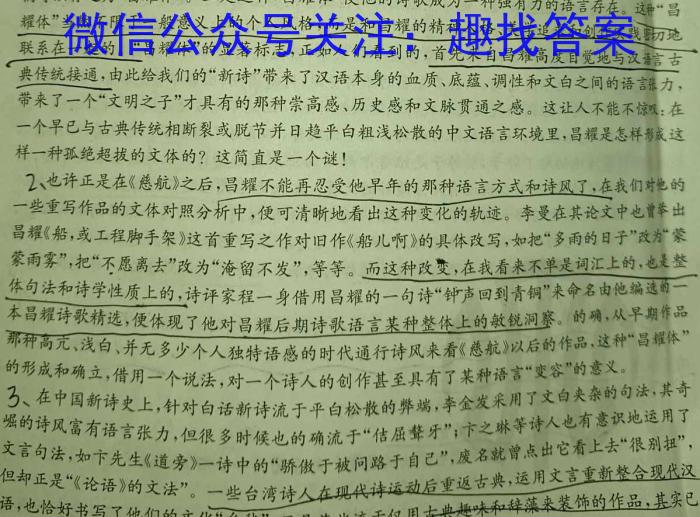 微信公众号关注：趣找答案
联系在
典传统接通，由此给我们的“新诗”带来了汉语本身的血质、底蕴、调性和文白之间的语言张力，
带来了一个“文明之子”才具有的那种崇高感、历史感和文脉贯通之感。这让人不能不惊叹：在
一个早已与古典传统相断裂或脱节并日趋平白粗浅松散的中文语言环境里，昌耀是怎样形成这
样一种孤绝超拔的文体的？这简直是一个谜！
2、也许正是在《慈航》之后，昌耀不能再忍受他早年的那种语言方式和诗风了，在我们对他的
一些重写作品的文体对照分析中，便可清晰地看出这种变化的轨迹。李曼在其论文中也曾举出
昌耀《船，或工程脚手架》这首重写之作对旧作《船儿啊》的具体改写，如把“多雨的日子”改为“蒙
蒙雨雾”，把“不愿离去”改为“淹留不发”，等等。而这种改变，在我看来不单是词汇上的，也是整
体句法和诗学性质上的，诗评家程一身借用昌耀的一句诗“钟声回到青铜”来命名由他编选的一
本昌耀诗歌精选，便体现了他对昌耀后期诗歌语言某种整体上的敏锐洞察。的确，从早期作品
那种高亢、浅白、并无多少个人独特语感的时代通行诗风来看《慈航》以后的作品，这种“昌耀体”
的形成和确立，借用一个说法，对一个诗人的创作甚至具有了某种语言“变容”的意义。
3、在中国新诗史上，针对白话新诗流于平白松散的弊端，李金发采用了文白夹杂的句法，其奇
崛的诗风富有语言张力，但很多时候也的确流于“佶屈聱牙”；卞之琳等诗人也有意识地运用了
文言句法，如卞先生《道旁》一诗中的“骄傲于被问路于自己”，废名就曾点出它看上去“很别扭”，
但却正是“《论语》的文法”。一些台湾诗人在现代诗运动后重返古典，运用文言重新整合现代汉
语，也恰好书写了他们的文化 仅用古典趣味和辞藻来装饰的作品，其实已